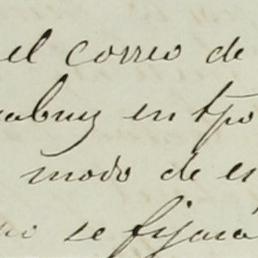 el correo de
en tpo
modo de es
se fijará